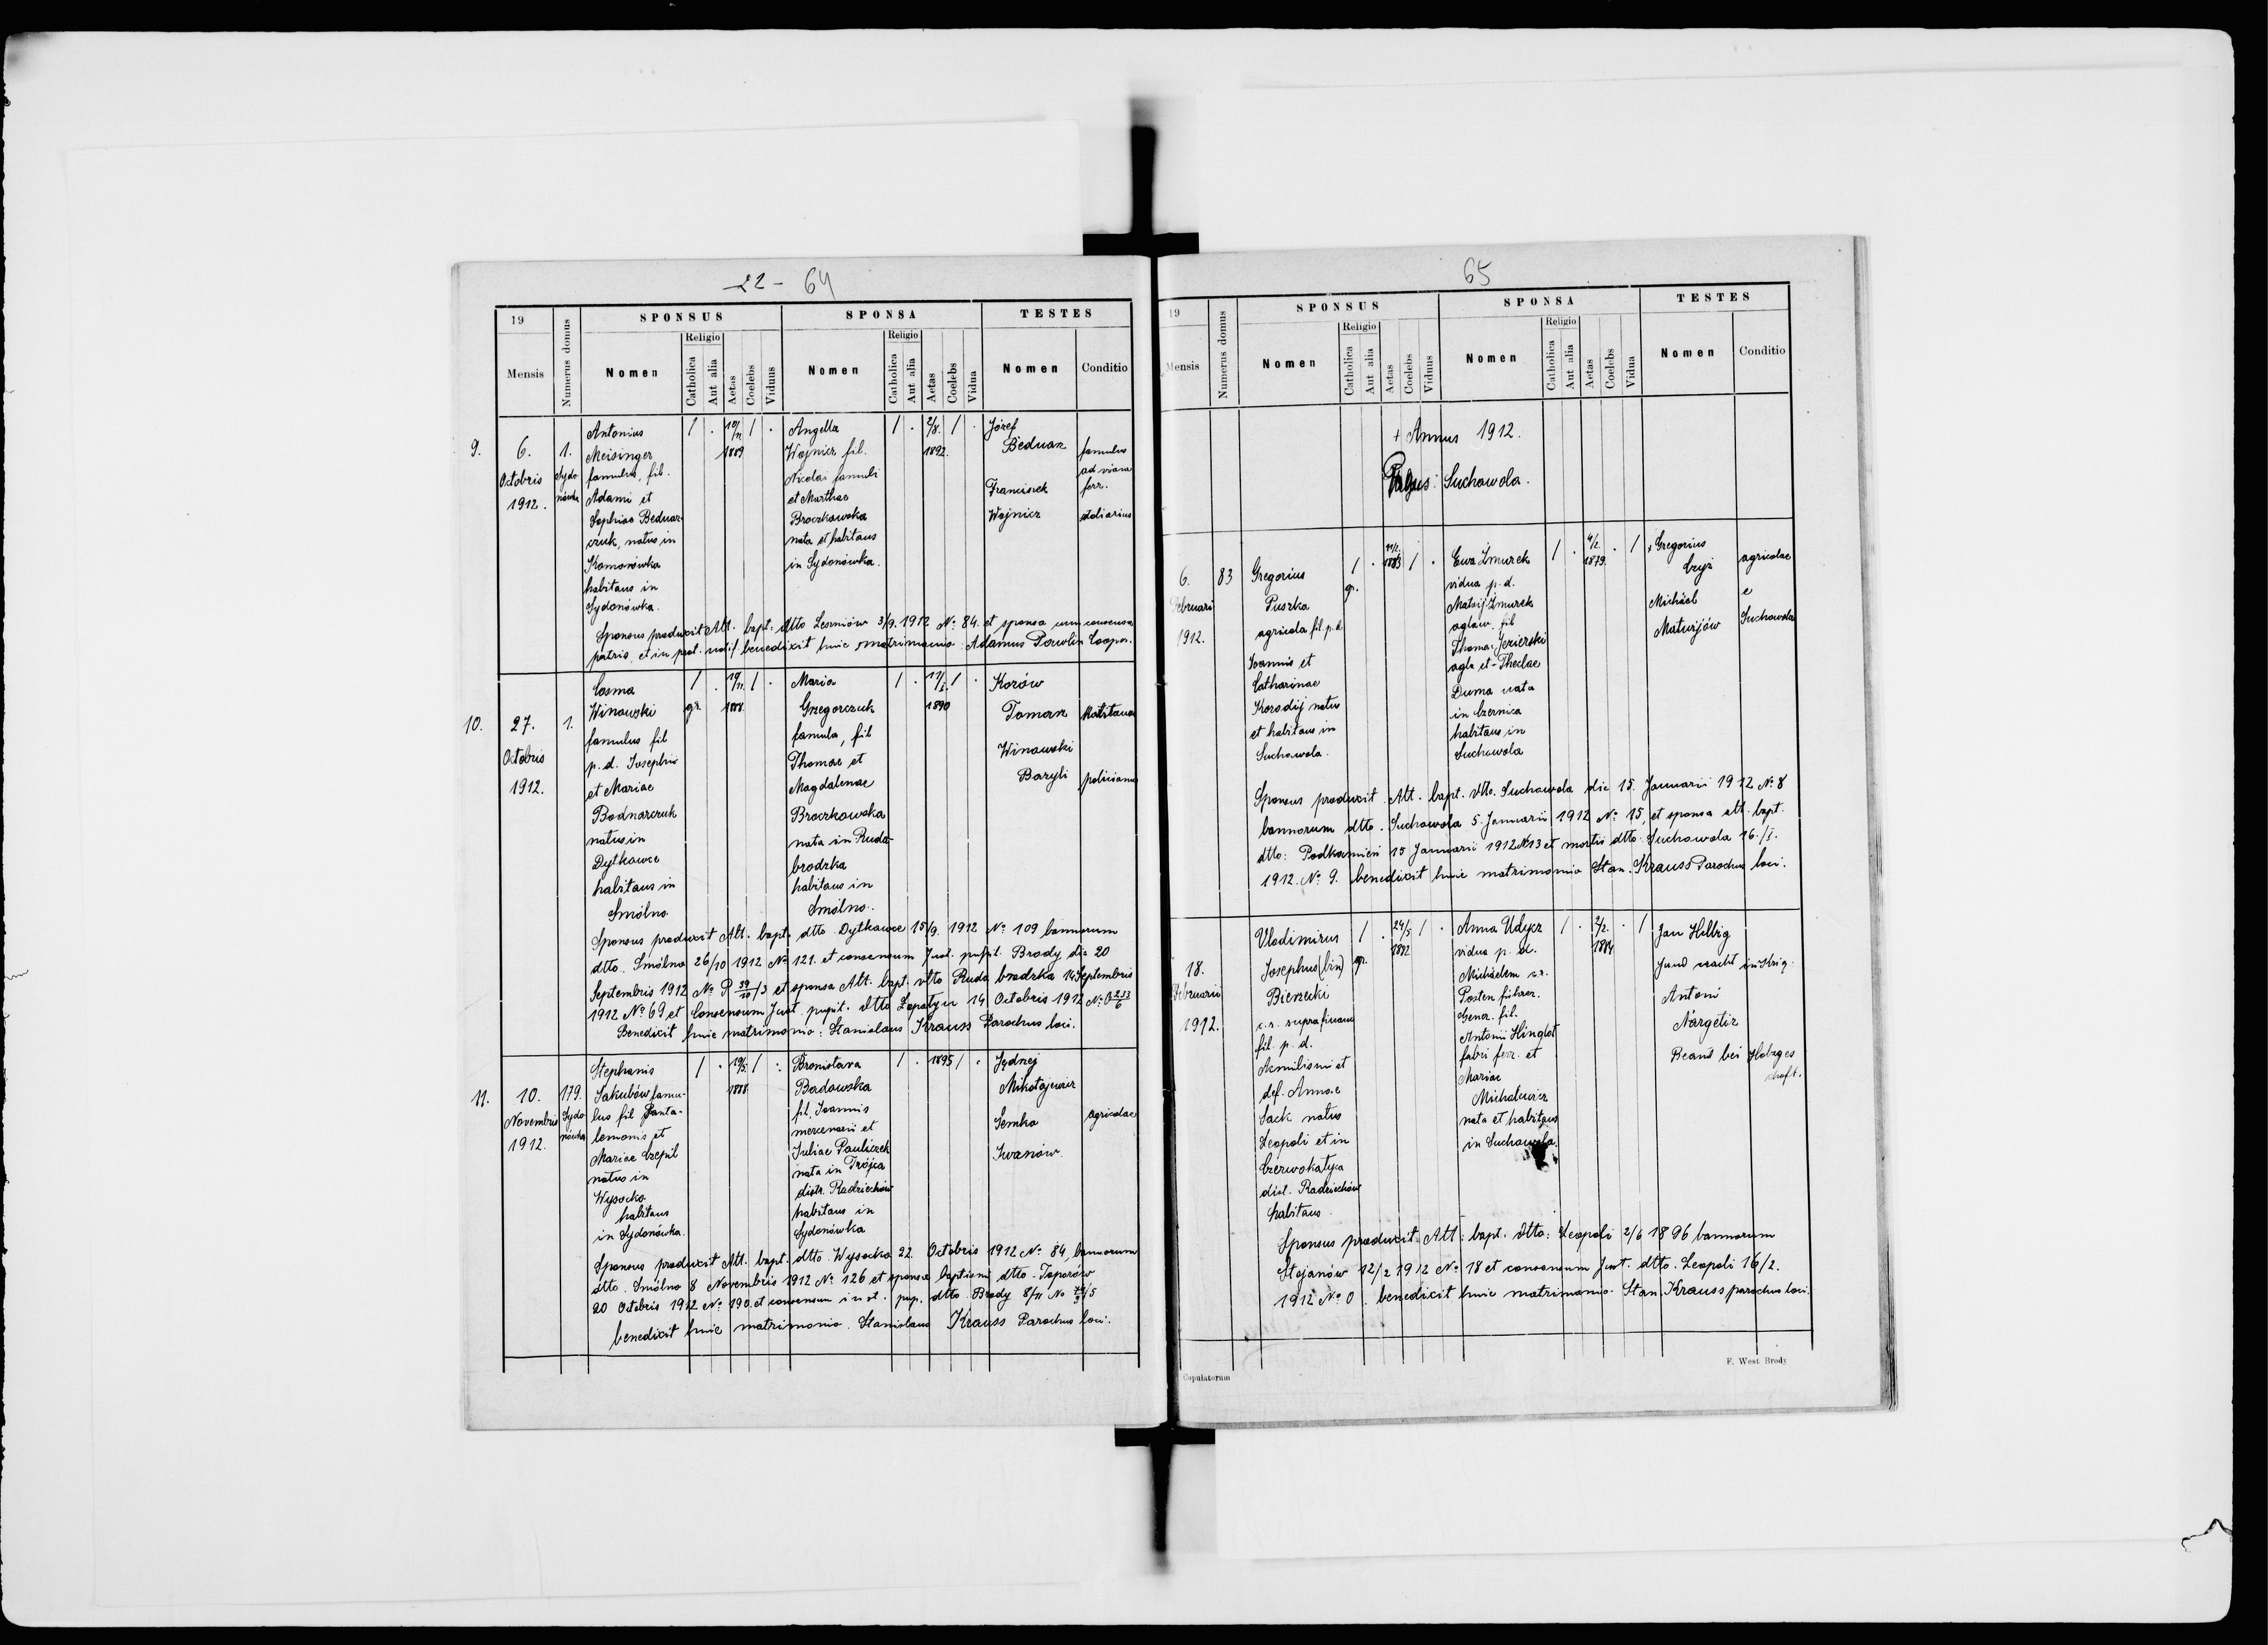 22 - 64
19
Mensis
Numerus domus
SPONSUS
Nomen
Religio
Catholica
Aut alia
Aetas
Coelebs
Viduus
SPONSA
Nomen
Religio
Catholica
Aut alia
Aetas
Coelebs
Vidua
TESTES
Nomen
Conditio
9.
6.
Octobris
1912.
1.
Sydo
nówka
Antonius
Meisinger
famulus, fil.
Adami et
Sophiae Bednar-
czuk, natus in
Komorówka
habitans in
Sydonówka.
1 . 10/11 1889 1 .
Angella
Wojnicz fil.
Nicolai famuli
et Marthae
Broczkowska
nata et habitans
in Sydonówka.
1 . 2/8. 1892. 1 .
Józef
Bednarz
Franciszek
Wojnicz
famulus
ad viam
ferr.
stoliarius
Sponsus produxit Att. bapt. dtto Leszniów 3/9. 1912 No 84. et sponsa cum consensu
patris et in prot. not. f. benedixit huic matrimonio: Adamus Pawlin Coop.
10.
27.
Octobris
1912.
1.
Cosma
Winowski
famulus fil
p. d. Josephi
et Mariae
Bodnarczuk
natus in
Dytkowce
habitans in
Smólno
1 gr. . 1888. 1 .
Maria
Grzegorczuk
famula, fil
Thomae et
Magdalenae
Broczkowska
nata in Ruda-
brodzka
habitans in
Smólno.
1 . 1890 1 .
Korów
Tomasz
Winowski
Bazyli
policianus
Sponsus produxit Att. bapt. dtto Dytkowce 15/9. 1912 No 109 bannorum
dtto. Smólno 26/10 1912 No 121. et consensum Jud. pupil. Brody die 20
Septembris 1912 No P 39/10/3 et sponsa Att. bapt. dtto Ruda brodzka 14 Septembris
1912 No 69 et Consensum Jud. pupil. dtto Łopatyn 14 Octobris 1912 No
Benedixit huic matrimonio: Stanislaus Krauss Parochus loci.
11.
10.
Novembris
1912.
179.
Sydo
nówka
Stephanus
Jakubów famu-
lus fil Panta-
lemonis et
Mariae Czepil
natus in
Wysocko
habitans
in Sydonówka.
1 . 1888 1 .
Bronisłava
Badowska
fil. Joannis
mercenarii et
Juliae Pauliczek
nata in Trójca
distr. Radziechów
habitans in
Sydonówka
1 . 1895 1 .
Jędrzej
Mikołajewicz
Semko
Iwanów.
agricolae
Sponsus produxit Att. bapt. dtto. Wysocko 22. Octobris 1912 No 84, bannorum
dtto. Smólno 8 Novembris 1912 No 126 et sponsa baptismi dtto. Toporów
20 Octobris 1912 No 190. et consensum inst. pup. dtto. Brody 8/11 No
benedixit huic matrimonio. Stanislaus Krauss Parochus loci.
65
19
Mensis
Numerus domus
SPONSUS
Nomen
Religio
Catholica
Aut alia
Aetas
Coelebs
Viduus
SPONSA
Nomen
Religio
Catholica
Aut alia
Aetas
Coelebs
Vidua
TESTES
Nomen
Conditio
+ Annus 1912.
Pagus: Suchowola.
6.
Februarii
1912.
83
Gregorius
Puszka
agricola fil. p. d.
Joannis et
Catharinae
Korodij natus
et habitans in
Suchowola.
1 gr. . 11/2. 1883 1 .
Ewa Żmurek
vidua p. d.
Matvij Żmurek
fil
Thomae Jezierski
et Theclae
Duma nata
in Czernica
habitans in
Suchowola
1 . 4/2. 1879. . 1
Gregorius
Czyż
Michäel
Matwijów
agricolae
e
Suchowola
Sponsus produxit Att. bapt. dtto. Suchowola die 15. Januarii 1912 No 8
bannorum dtto. Suchowola 5. Januarii 1912 No 15, et sponsa att. bapt.
dtto: Podkamień 15 Januarii 1912 N 13 et mortis dtto: Suchowola 16./I.
1912. No 9. benedixit huic matrimonio Stan. Krauss Parochus loci.
18.
Februarii
1912.
Vladimirus
Josephus (bin)
Bierzecki
c. r.
fil. p. d.
Aemiliani et
def. Annae
Sack natus
Leopoli et in
dist. Radziechów
habitans.
1 gr. . 24/5 1 .
Anna Udycz
vidua p. d.
Michäelem c. r.
Posten führer.
Gener. fil.
Antonii Hinglot
fabri ferr. et
Mariae
Michalewicz
nata et habitans
in Suchowola.
1 . 2/2. . 1
Jan Hellrig
Antoni
Nargetiz
Beamt bei
Sponsus produxit Att: bapt. dtto: Leopoli 2/6 1896 bannorum
Stojanów 12/2 1912 No 18 et consensum Jud. dtto. Leopoli 16/2.
1912 No 0. benedixit huic matrimonio. Stan. Krauss parochus loci.
Copulatorum
F. West Brody